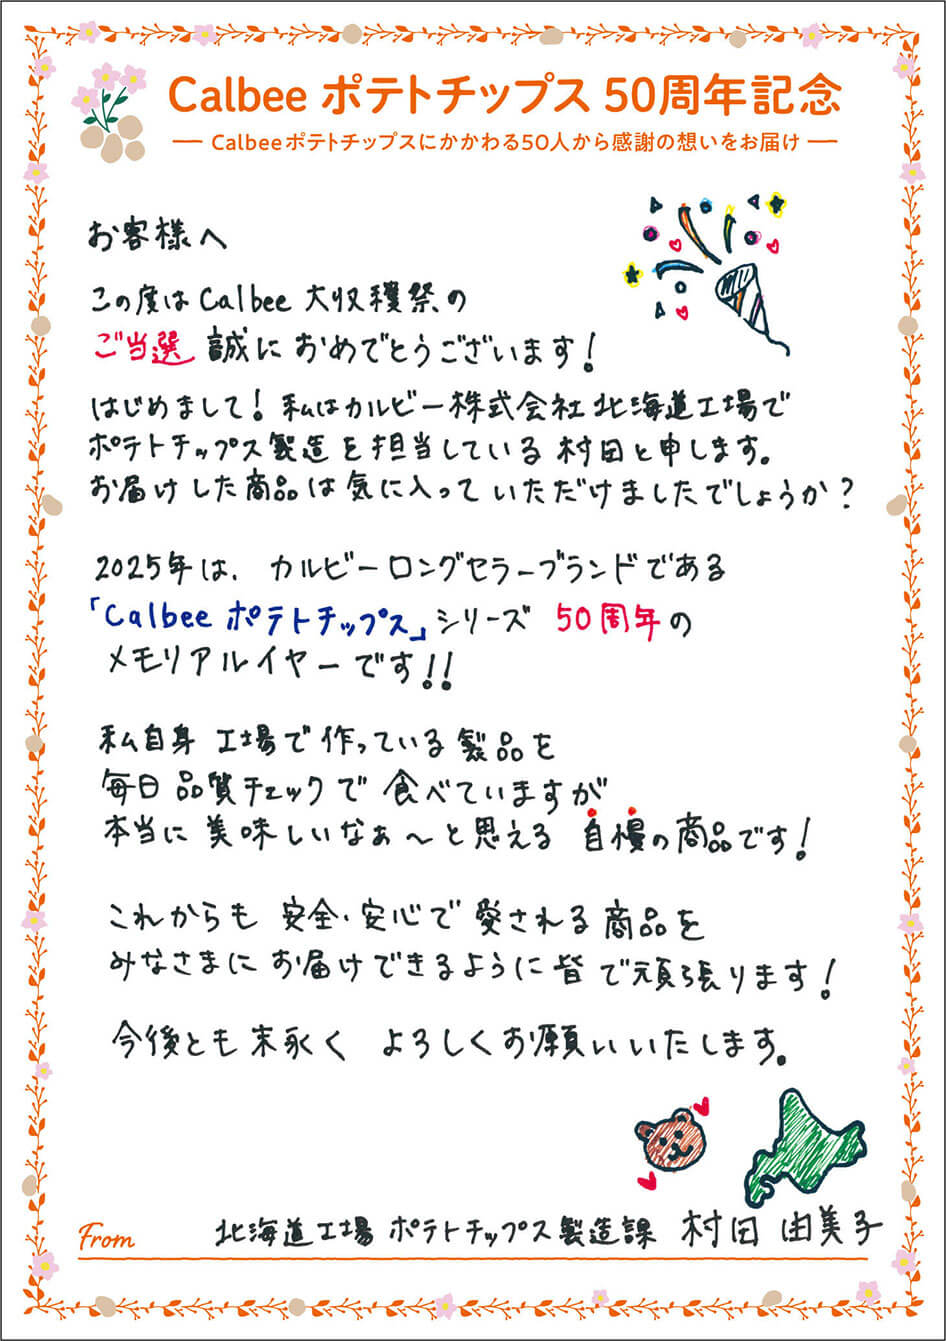 Calbee ポテトチップス 50周年記念
Calbeeポテトチップスにかかわる50人から感謝の想いをお届け
お客様へ
この度は Calbee 大収穫祭の
ご当選 誠に おめでとうございます!
はじめまして! 私はカルビー株式会社 北海道工場で
ポテトチップス製造を担当している 村田と申します。
お届けした商品は気に入って いただけましたでしょうか?
2025年は、カルビーロングセラーブランドである
「Calbee ポテトチップス」シリーズ 50周年の
メモリアルイヤーです!!
私自身 工場で作っている製品を
毎日 品質チェックで 食べていますが
本当に 美味しいなぁ〜と思える 自慢の商品です!
これからも 安全・安心で 愛される商品を
みなさまに お届けできるように 皆で頑張ります!
今後とも 末永く よろしくお願いいたします。
From 北海道工場 ポテトチップス製造課 村田 由美子